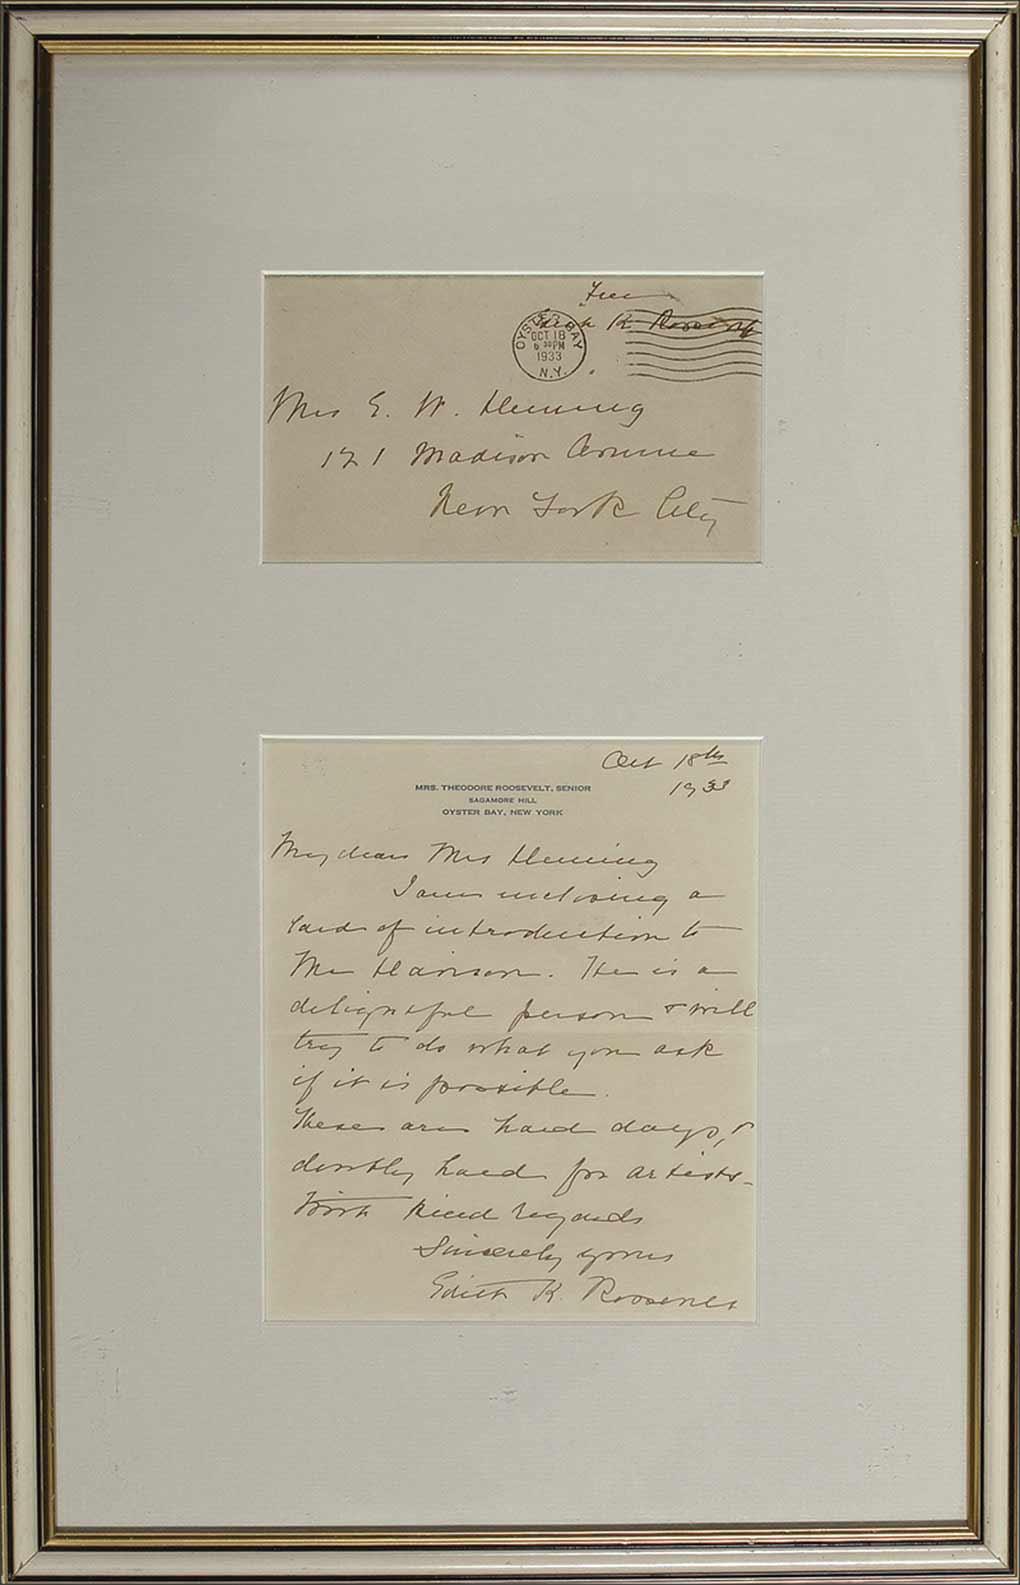 Free
Edith K. Roosevelt
OYSTER BAY
OCT 18
6 30 PM
1933
N.Y.
Mrs E. W. Heming
121 Madison Avenue
New York City
Oct 18th
1933
MRS. THEODORE ROOSEVELT, SENIOR
SAGAMORE HILL
OYSTER BAY, NEW YORK
My dear Mrs Heming
I am enclosing a
card of introduction to
Mr Harrison. He is a
delightful person & will
try to do what you ask
if it is possible.
These are hard days, &
doubly hard for artists-
With kind regards
Sincerely yours
Edith K. Roosevelt